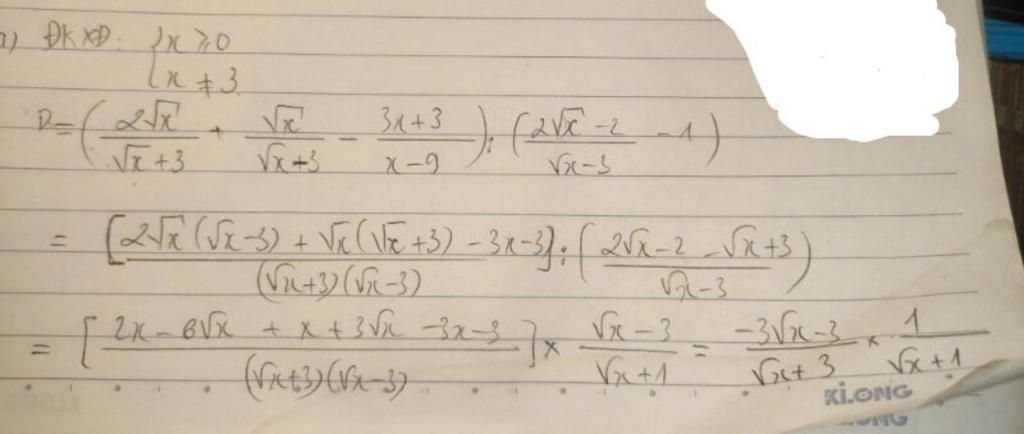 a) ĐKXĐ: {x ≥ 0
{x ≠ 3
D = (2√x/(√x+3) + √x/(√x+3) − (3x+3)/(x−9)) : ((2√x−2)/(√x−3) − 1)
= [(2√x(√x−3) + √x(√x+3) − 3x−3)/((√x+3)(√x−3))] : ((2√x−2−√x+3)/(√x−3))
= [(2x − 6√x + x + 3√x − 3x−3)/((√x+3)(√x−3))] × (√x−3)/(√x+1) = (−3√x−3)/(√x+3) × 1/(√x+1)
KLONG